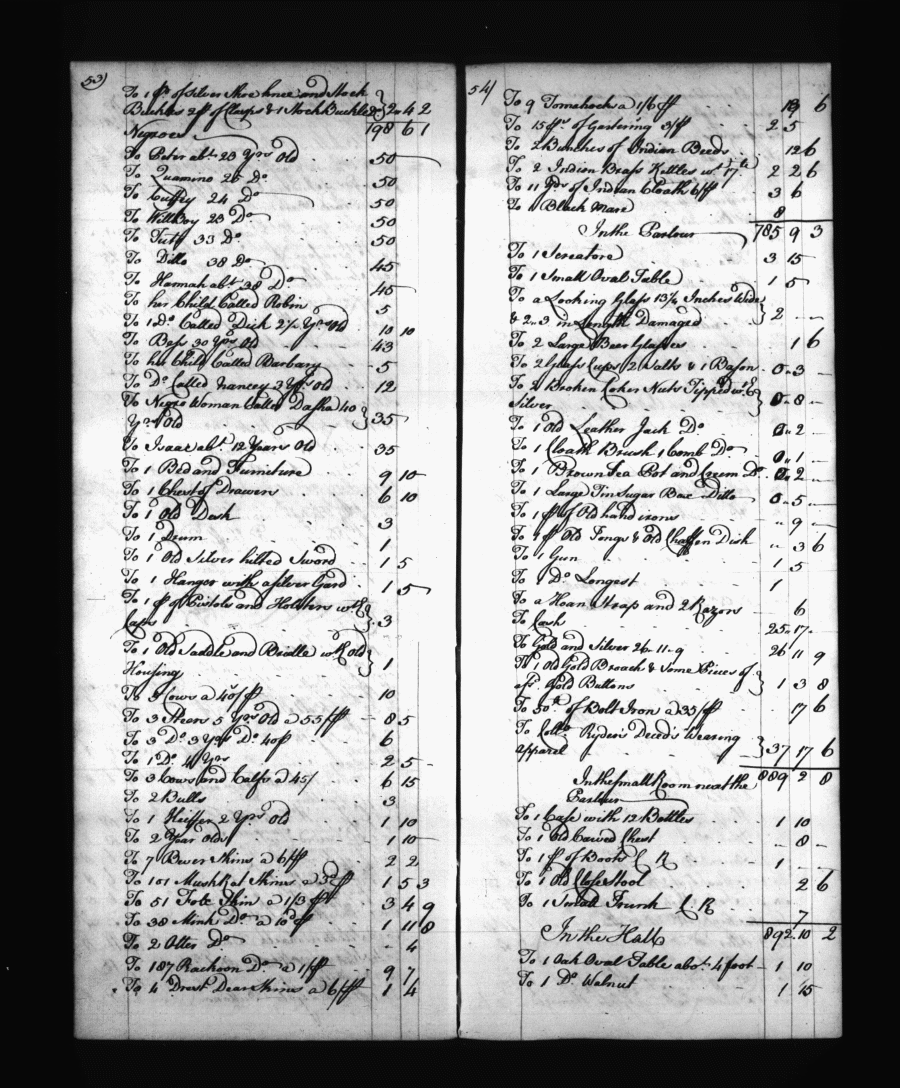 53)
To 1 pr. of Silver Shoe knee and Stock
Buckles 2 pr of Clasps & 1 Stock Buckle Do 2 " 4 2
Negroes 198 6 1
To Peter abt. 23 Yrs Old 50
To Quamino 26 Do 50
To Cuffey 24 Do 50
To Will Boy 23 Do 50
To 33 Do 50
To Ditto 38 Do 45
To Hannah abt. 38 Do 45
To her Child Called Robin 5
To 1 Do. Called Dick 2½ Yrs Old 10 10
To Bess 30 Yrs Old 43
To her Child Called Barbary 5
To Do Called Nancey 3 Yrs Old 12
To Negro Woman Called Dafha 40
Yrs Old 35
To Isaac abt. 12 Years Old 35
To 1 Bed and Furniture 9 10
To 1 Chest of Drawers 6 10
To 1 Old Desk 3
To 1 Drum 1
To 1 Old Silver hilted Sword 1 5
To 1 Hanger with a Silver Gard 1 5
To 1 pr of Pistols and Holsters wth
Caps 3
To 1 Old Saddle and Bridle wth Old
Housing 1
To 5 Cows a 40/ pr 10
To 3 Steers 5 Yrs Old a 55/ pr 8 5
To 3 Do 3 Yrs Do 40/ 6
To 1 Do. 4 Yrs 2 5
To 3 Cows and Calfs a 45/ 6 15
To 2 Bulls 3
To 1 Heiffer 2 Yrs Old 1 10
To 2 Year Olds 1 10
To 7 Bever Skins a 6/ pr 2 2
To 101 MushRat Skins a 3d pr 1 5 3
To 51 Skin a 1/3 pr 3 4 9
To 38 Minks Do a 10d pr 1 11 8
To 2 Otter Do 4
To 187 Rackoon Do a 1/ pr 9 7
To 4 Drest Dear Skins a 6/ pr 1 4
54)
To 9 Tomehocks a 1/6 pr 13 6
To 15 ps of Gartering 3/ pr 2 5
To 2 Bunches of Indian Beeds 12 6
To 2 Indian Brass Kettles wt. 17 2 2 6
To 11 Yds of Indian Cloath 6/ pr 3 6
To 1 Black Mare 8
In the Parlour 785 9 3
To 1 Screatore 3 15
To 1 Small Oval Table 1 5
To a Looking Glass 13½ Inches Wide
& 2 " 3 in Length Damaged 2
To 2 Large Beer Glasses 1 6
To 2 Glass Cups 2 Salts & 1 Bason 0 " 3
To 2 Broken Coker Nuts Tipped wth
Silver 0 " 8
To 1 Old Leather Jack Do 0 " 2
To 1 Cloath Brush 1 Comb Do 0 " 1
To 1 Brown Tea Pot and Creem Do 0 " 2
To 1 Large Tin Sugar Box Ditto 0 " 5
To 1 pr of Old hand irons " 9
To 1 pr Old Tongs & Old Chaffen Dish " 3 6
To 1 Gun 1 5
To 1 Do Longest 1
To a Hoan Strap and 2 Razors 6
To Cash 25 " 17
To Gold and Silver 26 " 11 " 9 26 11 9
To 1 Old Gold Broach & Some Pieces of
Gold Buttons 1 3 8
To 50 lb of Bolt Iron a 33/ pr 17 6
To Collo Ryder's Deced's Wearing
apparel 37 17 6
In the small Room near the 889 2 8
Parlour
To 1 Case with 12 Bottles 1 10
To 1 Old Carved Chest 8
To 1 pr of Boots C R 1
To 1 Old Close Stool 2 6
To 1 Small Trunk C R 7
In the Hall 892 " 10 2
To 1 Oak Oval Table abot. 4 foot 1 10
To 1 Do. Walnut 1 15